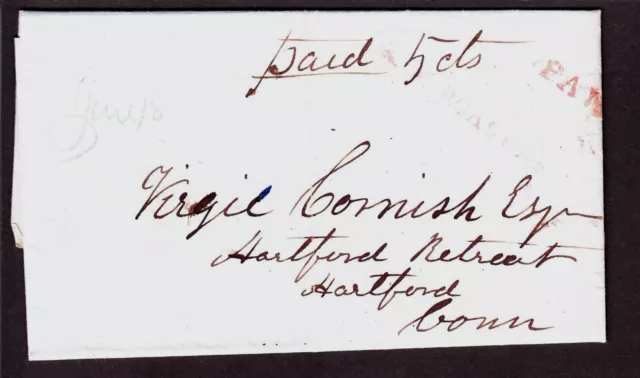 paid 5 cts
Virgil Cornish Esq
Hartford Retreat
Hartford
Conn